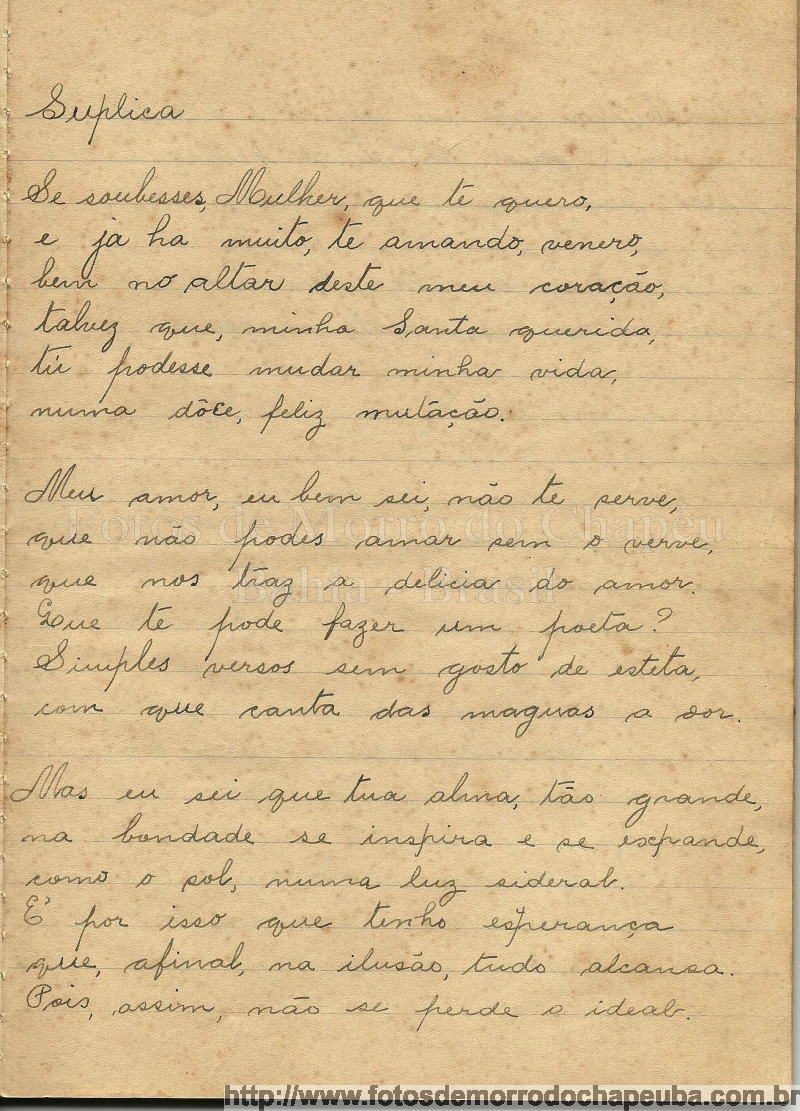 Suplica
Se soubesses, Mulher, que te quero,
e ja ha muito, te amando, venero,
bem no altar deste meu coração,
talvez que, minha Santa querida,
tú podesse mudar minha vida,
numa dôce, feliz mutação.
Meu amor, eu bem sei, não te serve,
que não podes amar sem o verve,
que nos traz a delicia do amor.
Que te pode fazer um poeta?
Simples versos sem gosto de esteta,
com que canta das maguas a dor.
Mas eu sei que tua alma, tão grande,
na bondade se inspira e se expande,
como o sol, numa luz sideral.
E' por isso que tenho esperança
que, afinal, na ilusão, tudo alcansa.
Pois, assim, não se perde o ideal.
Fotos de Morro do Chapéu
Bahia - Brasil
http://www.fotosdemorrodochapeuba.com.br